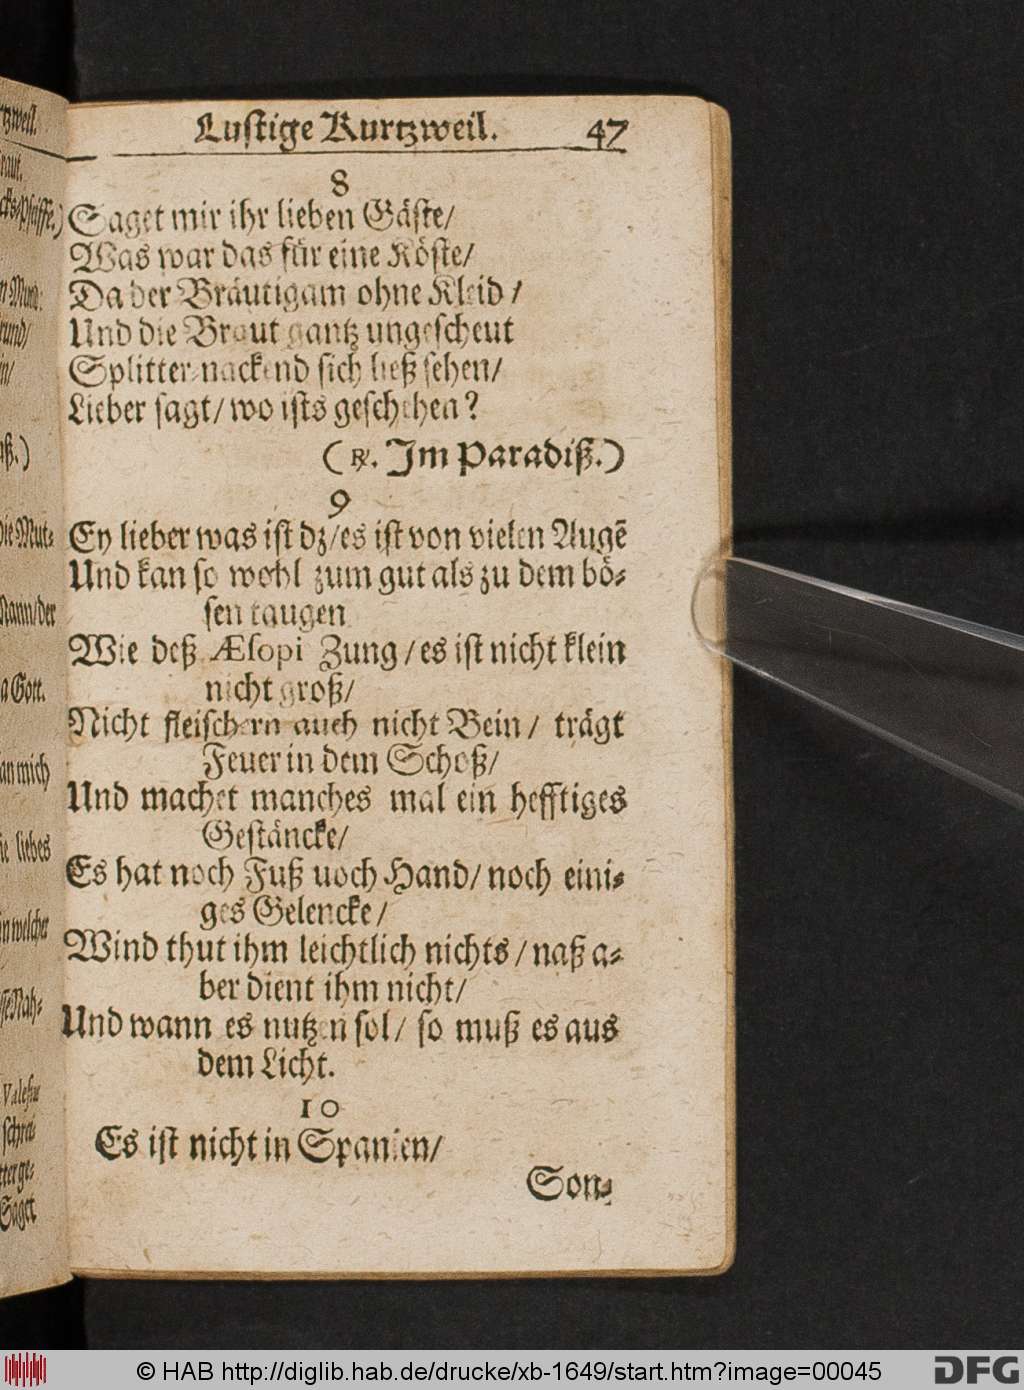 Lustige Kurtzweil. 47
8
Saget mir ihr lieben Gäste/
Was war das für eine Köste/
Da der Bräutigam ohne Kleid /
Und die Braut gantz ungescheut
Splitter nackend sich ließ sehen/
Lieber sagt/ wo ists geschehen?
(℟. Im Paradiß.)
9
Ey lieber was ist dz/es ist von vielen Augẽ
Und kan so wohl zum gut als zu dem bö-
sen taugen
Wie deß Æsopi Zung /es ist nicht klein
nicht groß/
Nicht fleischern auch nicht Bein / trägt
Feuer in dem Schoß/
Und machet manches mal ein hefftiges
Gestäncke/
Es hat noch Fuß uoch Hand/ noch eini-
ges Gelencke/
Wind thut ihm leichtlich nichts / naß a-
ber dient ihm nicht/
Und wann es nutzen sol/ so muß es aus
dem Licht.
10
Es ist nicht in Spanien/
Son-
© HAB http://diglib.hab.de/drucke/xb-1649/start.htm?image=00045
DFG